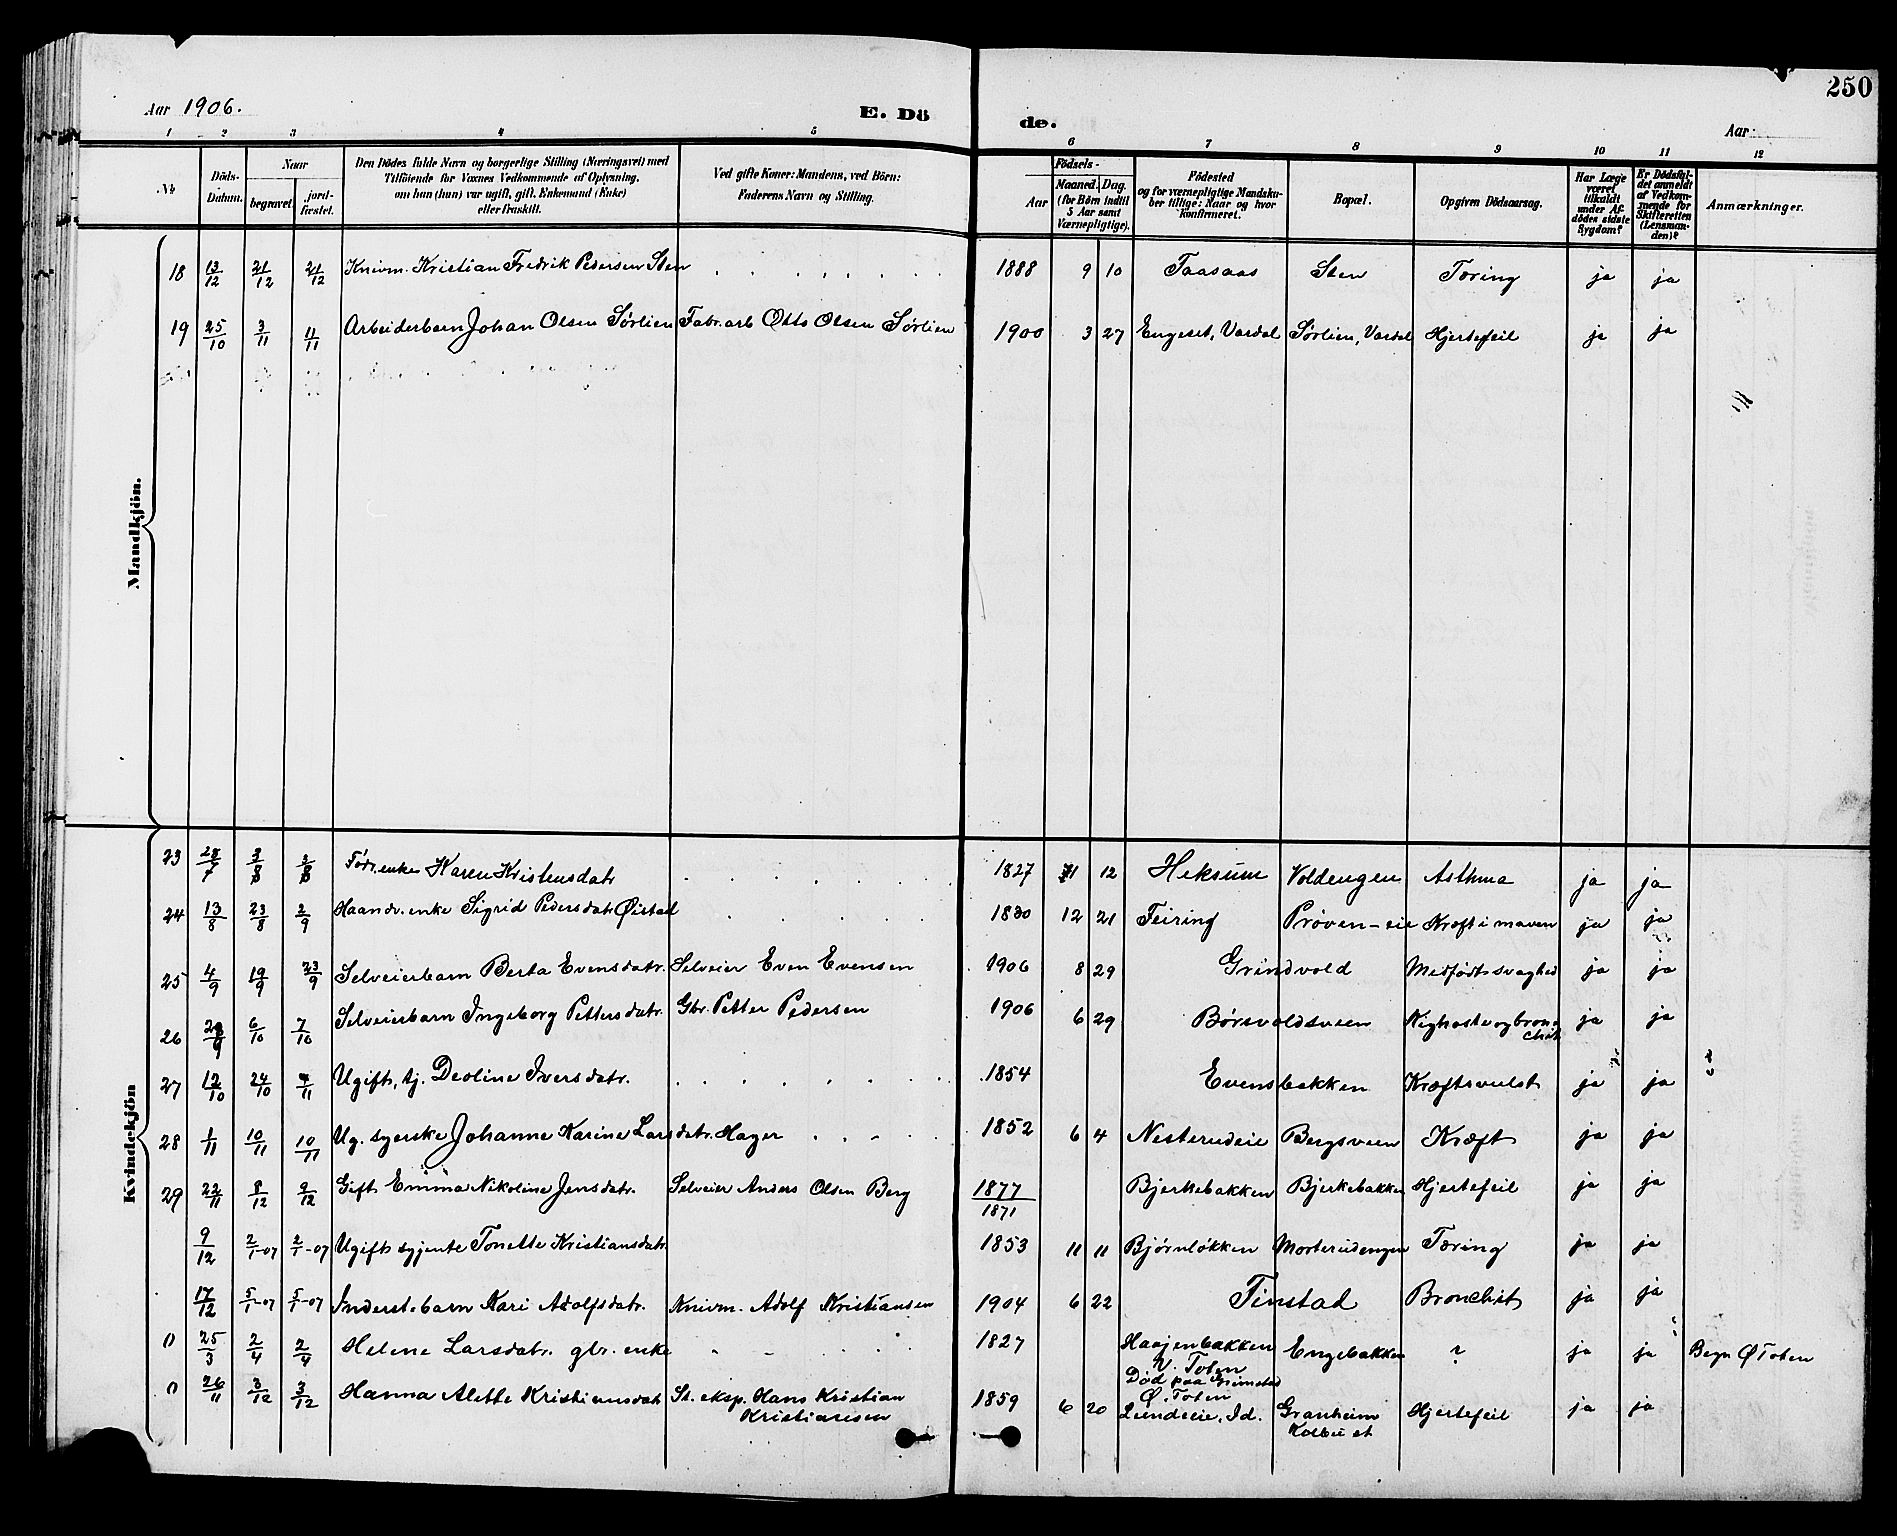 250
Aar 1906.
E. Dö
de.
Aar:
1 2 3 4 5 6 7 8 9 10 11 12
№
Döds-
Datum.
Naar
begravet
jord-
fæstet.
Den Dödes fulde Navn og borgerlige Stilling (Næringsvei) med
Tilföiende for Voxnes Vedkommende af Oplysning,
om han (hun) var ugift, gift, Enkemand (Enke)
eller fraskilt.
Ved gifte Koner: Mandens, ved Börn:
Faderens Navn og Stilling.
Födsels-
Aar
Maaned. Dag.
(for Börn indtil
5 Aar samt
Værnepligtige).
Födested
og for værnepligtige Mandska-
ber tillige: Naar og hvor
konfirmeret.
Bopæl.
Opgiven Dödsaarsag.
Har Læge
været
tilkaldt
under Af-
dödes sidste
Sygdom?
Er Dödsfal-
det anmeldt
af Vedkom-
mende for
Skifteretten
(Lensman-
den)?
Anmærkninger.
Mandkjön.
18 13/12 21/12 21/12 Knivm. Kristian Fredrik Pedersen Sten 1888 9 10 Taasaas Sten Tæring ja ja
19 25/10 3/11 11/11 Arbeiderbarn Johan Olsen Sørlien Fabr.arb Otto Olsen Sørlien 1900 3 27 Engeset, Vardal Sørlien, Vardal Hjertefeil ja ja
Kvindekjön
23 28/7 3/8 3/8 Föðr.enke Karen Kristensdatr 1827 11 12 Heksum Voldengen Asthma ja ja
24 13/8 23/8 2/9 Haandv.enke Sigrid Pedersdatr Øistad 1830 12 21 Feiring Prøven-eie Kræft i maven ja ja
25 4/9 19/9 23/9 Selveierbarn Berta Evensdatr. Selveier Even Evensen 1906 8 29 Grindvold Medfødt svaghed ja ja
26 28/9 6/10 7/10 Selveierbarn Ingeborg Pettersdatr. Gbr. Petter Pedersen 1906 6 29 Børsvoldsveen Kighoste og bron
chit ja ja
27 12/10 24/10 4/11 Ugift, tj. Deoline Iversdatr. 1854 Evensbakken Kræftsvulst ja ja
28 1/11 10/11 10/11 Ug. syerske Johanne Karine Larsdatr. Hager 1852 6 4 Nesterudeie Bergsveen Kræft ja ja
29 22/11 8/12 9/12 Gift Emma Nikoline Jensdatr. Selveier Anders Olsen Berg 1877
1871 Bjerkebakken Bjerkebakken Hjertefeil ja ja
9/12 2/1-07 2/1-07 Ugift syjente Tonette Kristiansdatr 1853 11 11 Bjørnløkken Morterudengen Tæring ja ja
17/12 5/1-07 5/1-07 Inderst.barn Kari Adolfsdatr. Knivm. Adolf Kristiansen 1904 6 22 Finstad Bronchit ja ja
0 25/3 2/4 2/4 Helene Larsdatr. gbr. enke 1827 Haajenbakken
V. Toten Engebakken ? ja ja Begr Ø Toten
Død paa Grimstad
Ø. Toten
0 26/11 3/12 3/12 Hanna Alette Kristiansdatr St. eksp. Hans Kristian
Kristiansen 1859 6 20 Lundseie, Id. Granheim
Kolbu st Hjertefeil ja ja